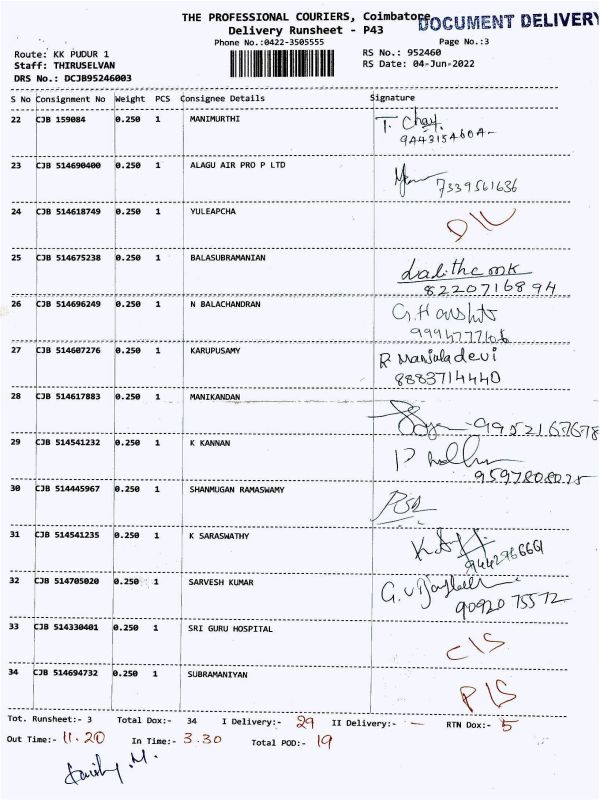 THE PROFESSIONAL COURIERS, Coimbatore
DOCUMENT DELIVERY
Delivery Runsheet - P43
Phone No.:0422-3505555
Page No.:3
Route: KK PUDUR 1
RS No.: 952460
Staff: THIRUSELVAN
RS Date: 04-Jun-2022
DRS No.: DCJB95246003
S No Consignment No Weight PCS Consignee Details Signature
22 CJB 159084 0.250 1 MANIMURTHI T. Chay.
9443154604
23 CJB 514690400 0.250 1 ALAGU AIR PRO P LTD
7339561636
24 CJB 514618749 0.250 1 YULEAPCHA D/L
25 CJB 514675238 0.250 1 BALASUBRAMANIAN
8220716894
26 CJB 514696249 0.250 1 N BALACHANDRAN
27 CJB 514607276 0.250 1 KARUPUSAMY R Manjuladevi
8883714440
28 CJB 514617883 0.250 1 MANIKANDAN
9952167678
29 CJB 514541232 0.250 1 K KANNAN
9597808075
30 CJB 514445967 0.250 1 SHANMUGAN RAMASWAMY
31 CJB 514541235 0.250 1 K SARASWATHY
9442966661
32 CJB 514705020 0.250 1 SARVESH KUMAR
9092075572
33 CJB 514330401 0.250 1 SRI GURU HOSPITAL C/S
34 CJB 514694732 0.250 1 SUBRAMANIYAN P/S
Tot. Runsheet:- 3 Total Dox:- 34 I Delivery:- 29 II Delivery:- — RTN Dox:- 5
Out Time:- 11.20 In Time:- 3.30 Total POD:- 19